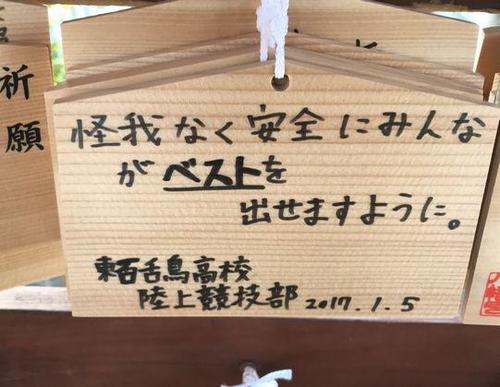 祈
願
怪我なく安全にみんな
がベストを
出せますように。
東百舌鳥高校
陸上競技部 2017.1.5